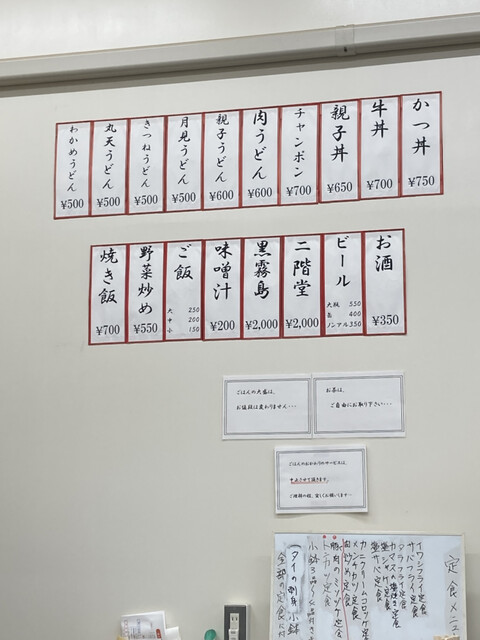 かつ丼
¥750
牛丼
¥700
親子丼
¥650
チャンポン
¥700
肉うどん
¥600
親子うどん
¥600
月見うどん
¥500
きつねうどん
¥500
丸天うどん
¥500
わかめうどん
¥500
お酒
¥350
ビール
大瓶 550
缶 400
ノンアル 350
二階堂
¥2,000
黒霧島
¥2,000
味噌汁
¥200
ご飯
大 250
中 200
小 150
野菜炒め
¥550
焼き飯
¥700
ごはんの大盛は、
お値段は変わりません・・・
お茶は、
ご自由にお取り下さい・・・
ごはんのおかわりのサービスは、
中止させて頂きます。
ご理解の程、宜しくお願いします…
定食メニュ
イワシフライ定食
サバフライ定食
タラフライ定食
カマスの塩焼き定食
塩サバ定食
カニクリームコロッケ定食
メンチカツ定食
トンカツ定食